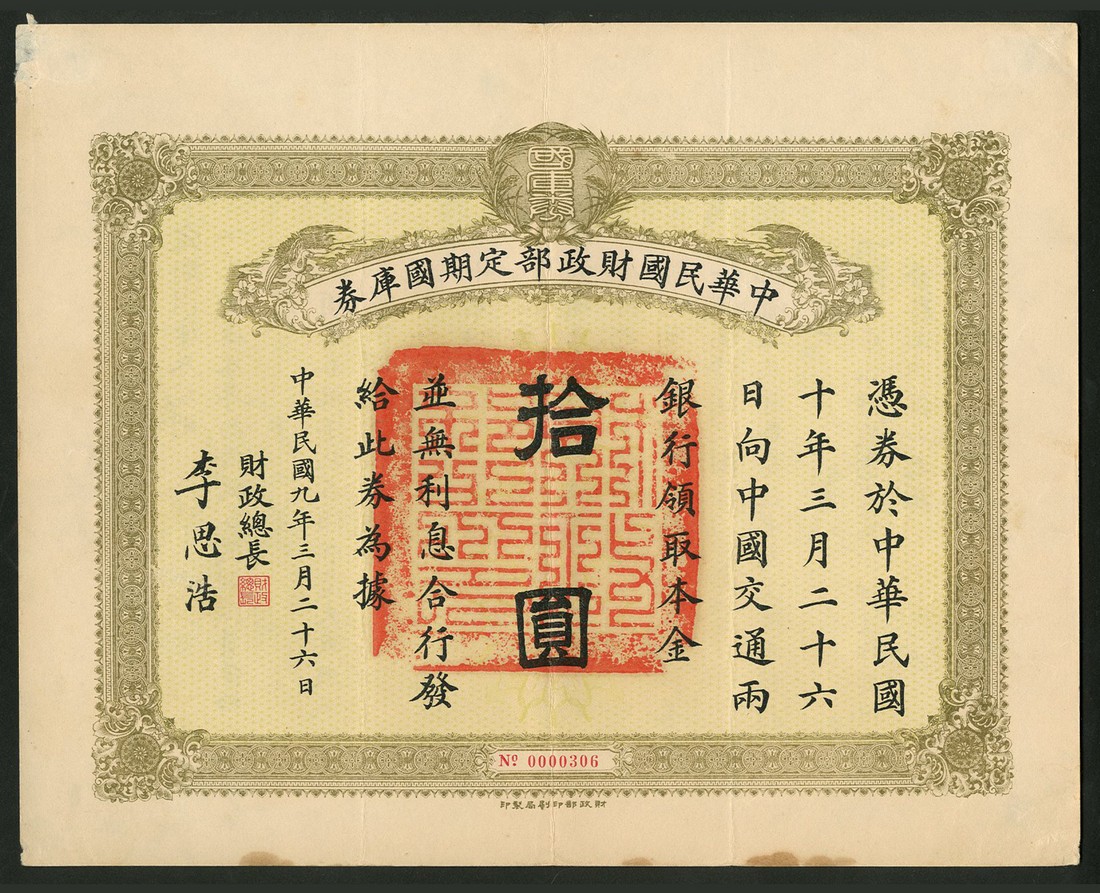 國庫券
中華民國財政部定期國庫券
憑券於中華民國
十年三月二十六
日向中國交通兩
銀行領取本金
拾圓
並無利息合行發
給此券為據
中華民國九年三月二十六日
財政總長
李思浩
財政總長
Nº 0000306
財政部印刷局製印